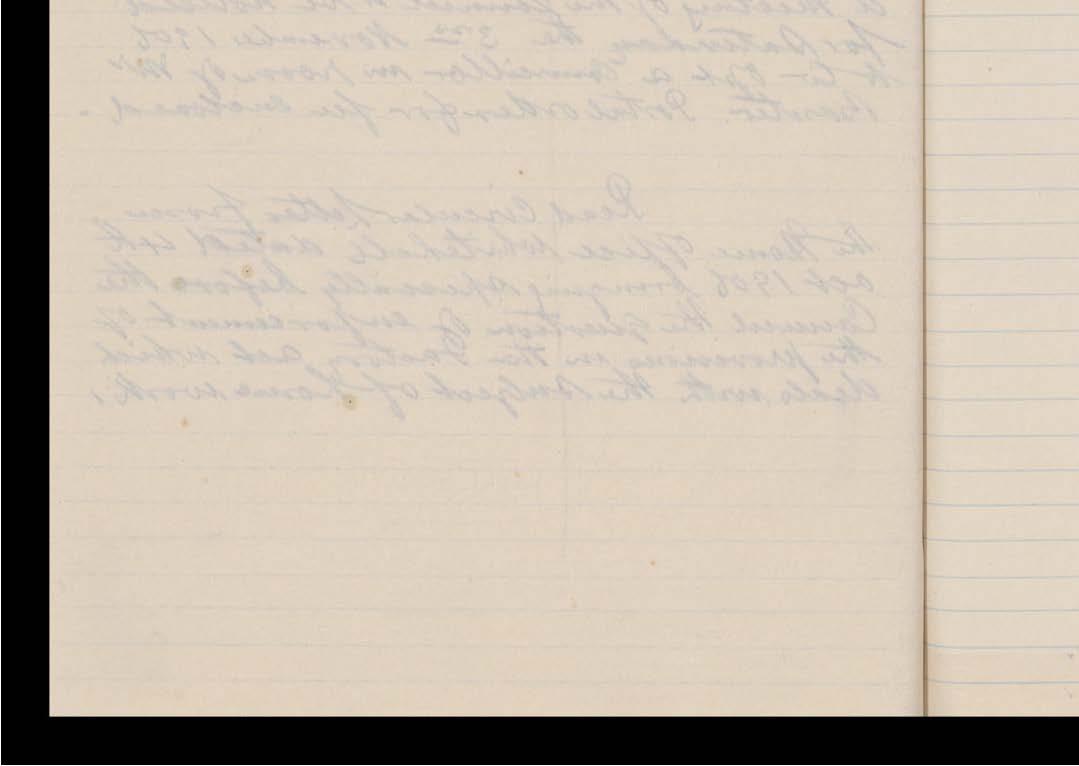 a meeting of the Council to be
for Saturday the 3rd November 1906
to Co-opt a Councillor in room of Mr
Postal order for fee enclosed.
Read Circular letter from
the Home Office Whitehall dated 4th
Oct 1906 bringing specially before the
Council the question of enforcement of
the provisions in the Factory Act which
deals with the subject of Home work.